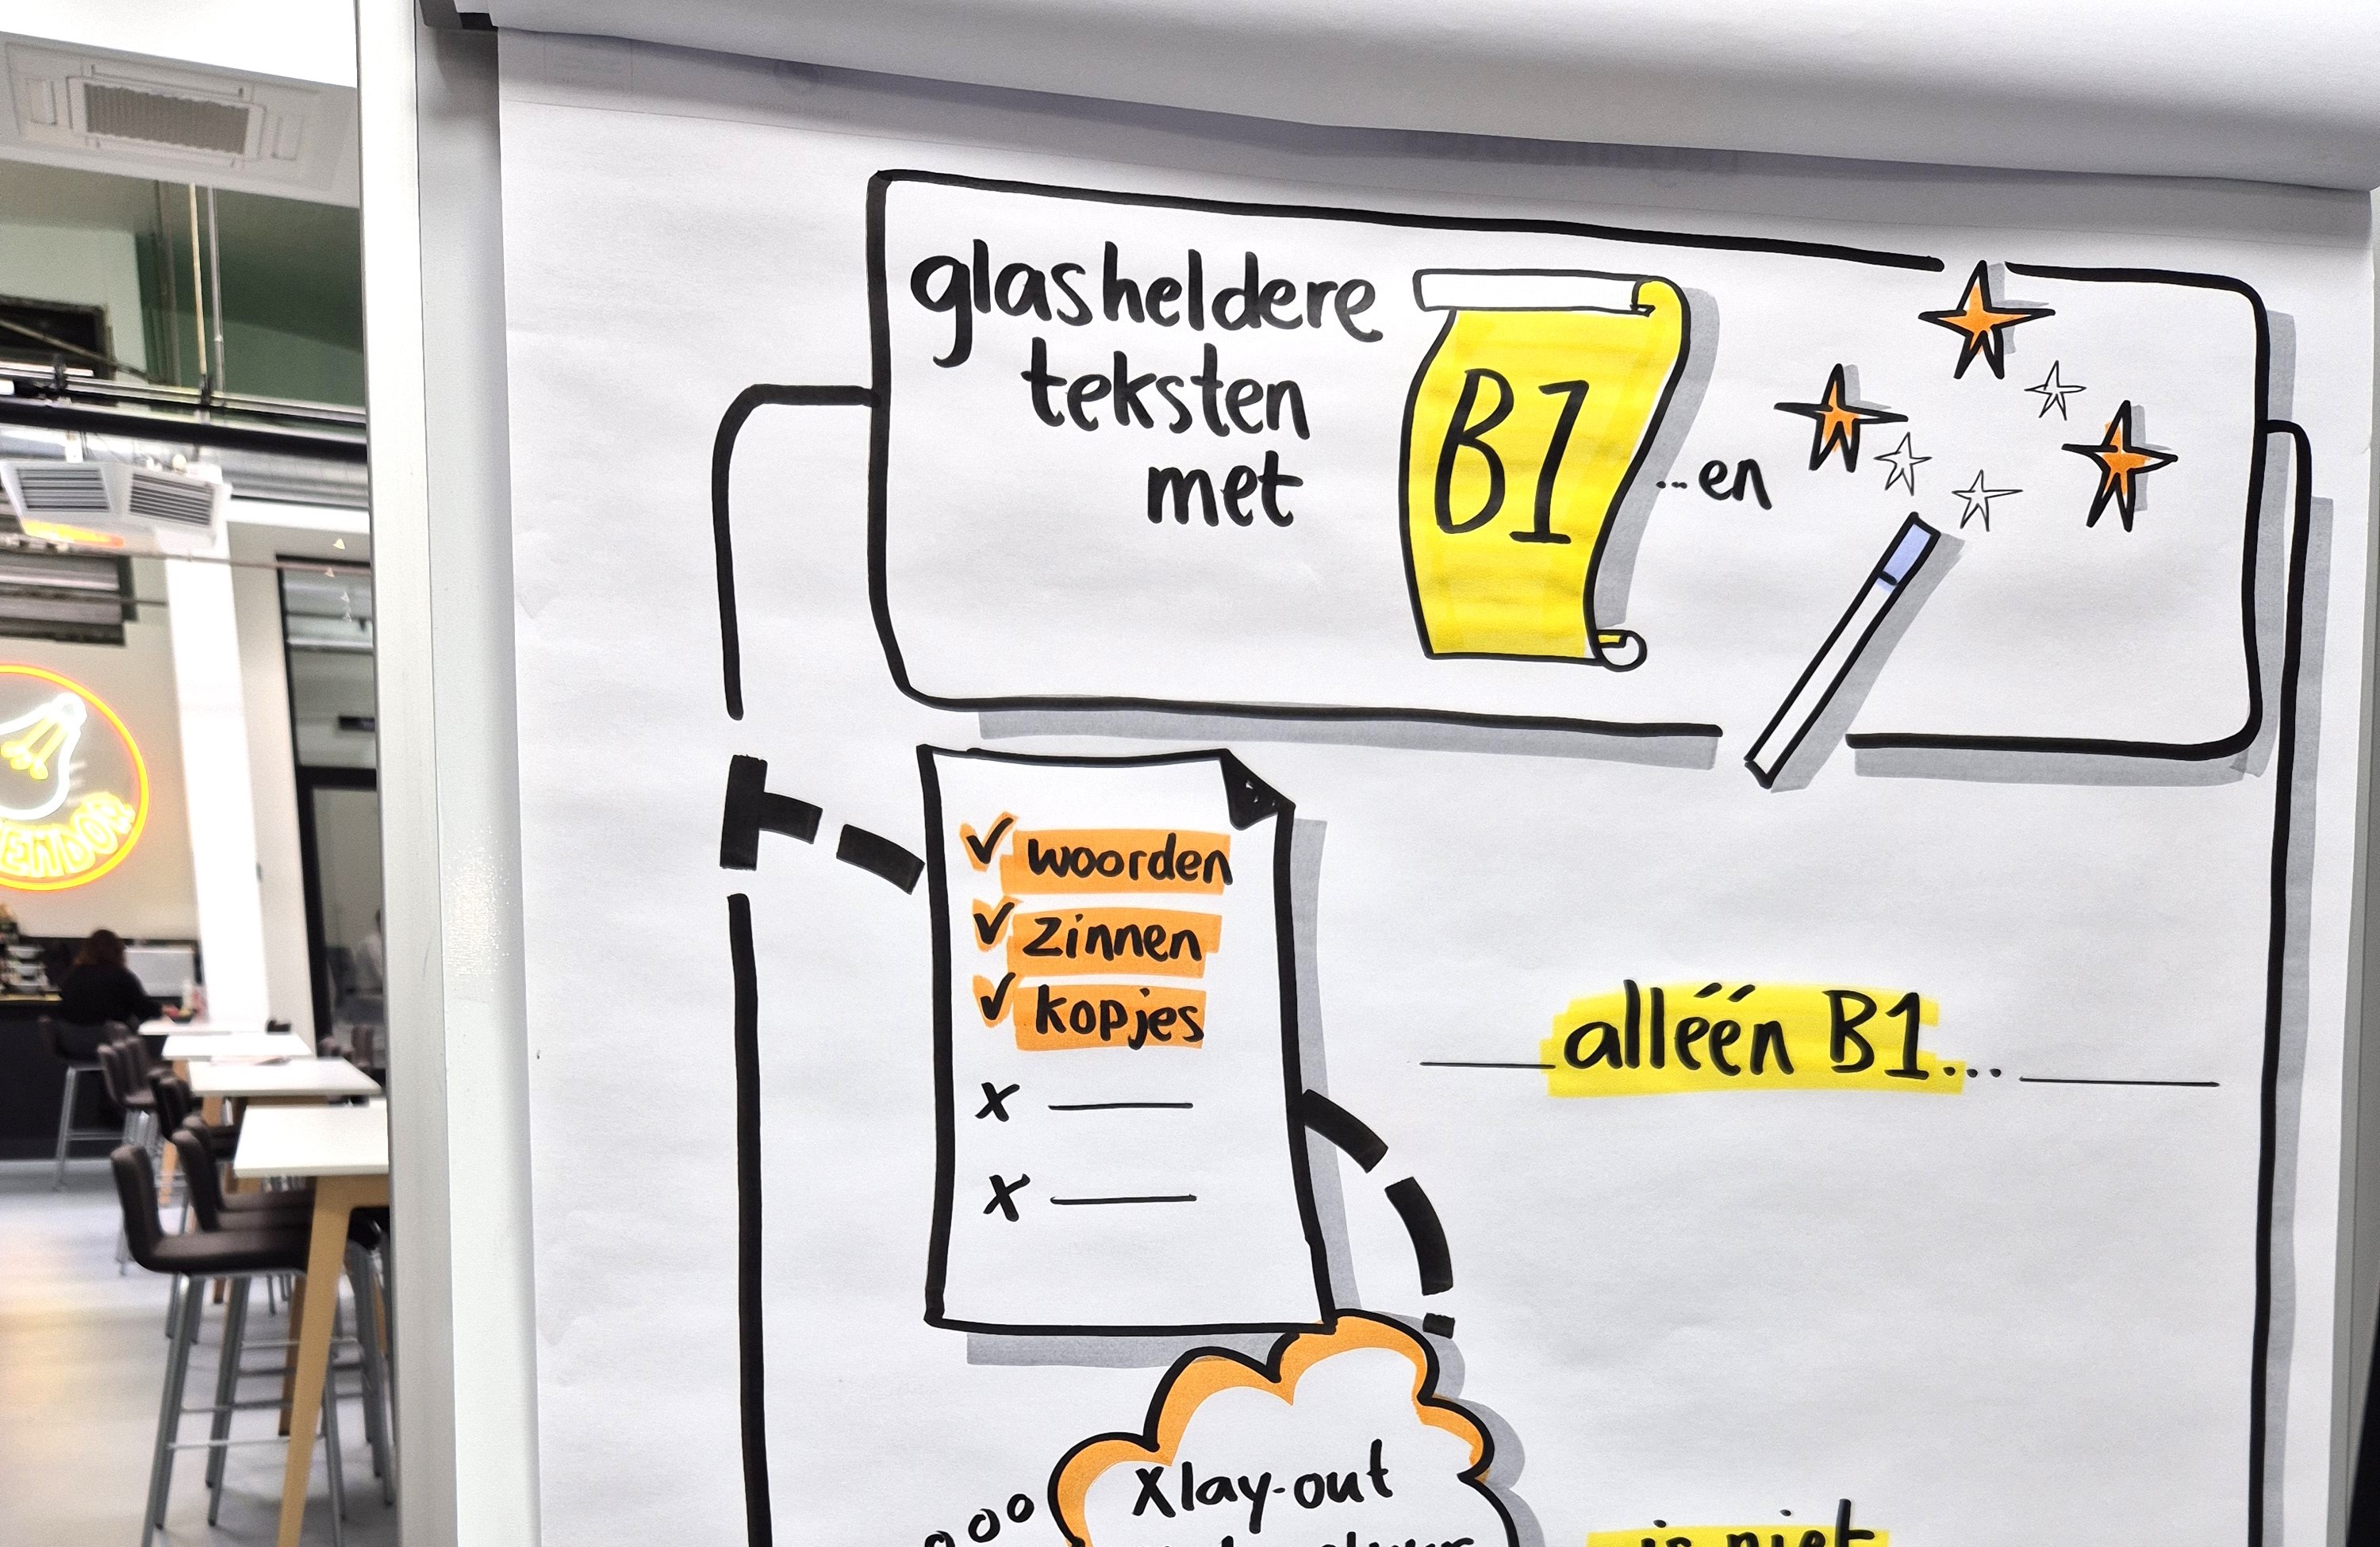 glasheldere
teksten
met
B1
...en
✓ woorden
✓ zinnen
✓ kopjes
x
x
alléén B1...
X lay-out
is niet